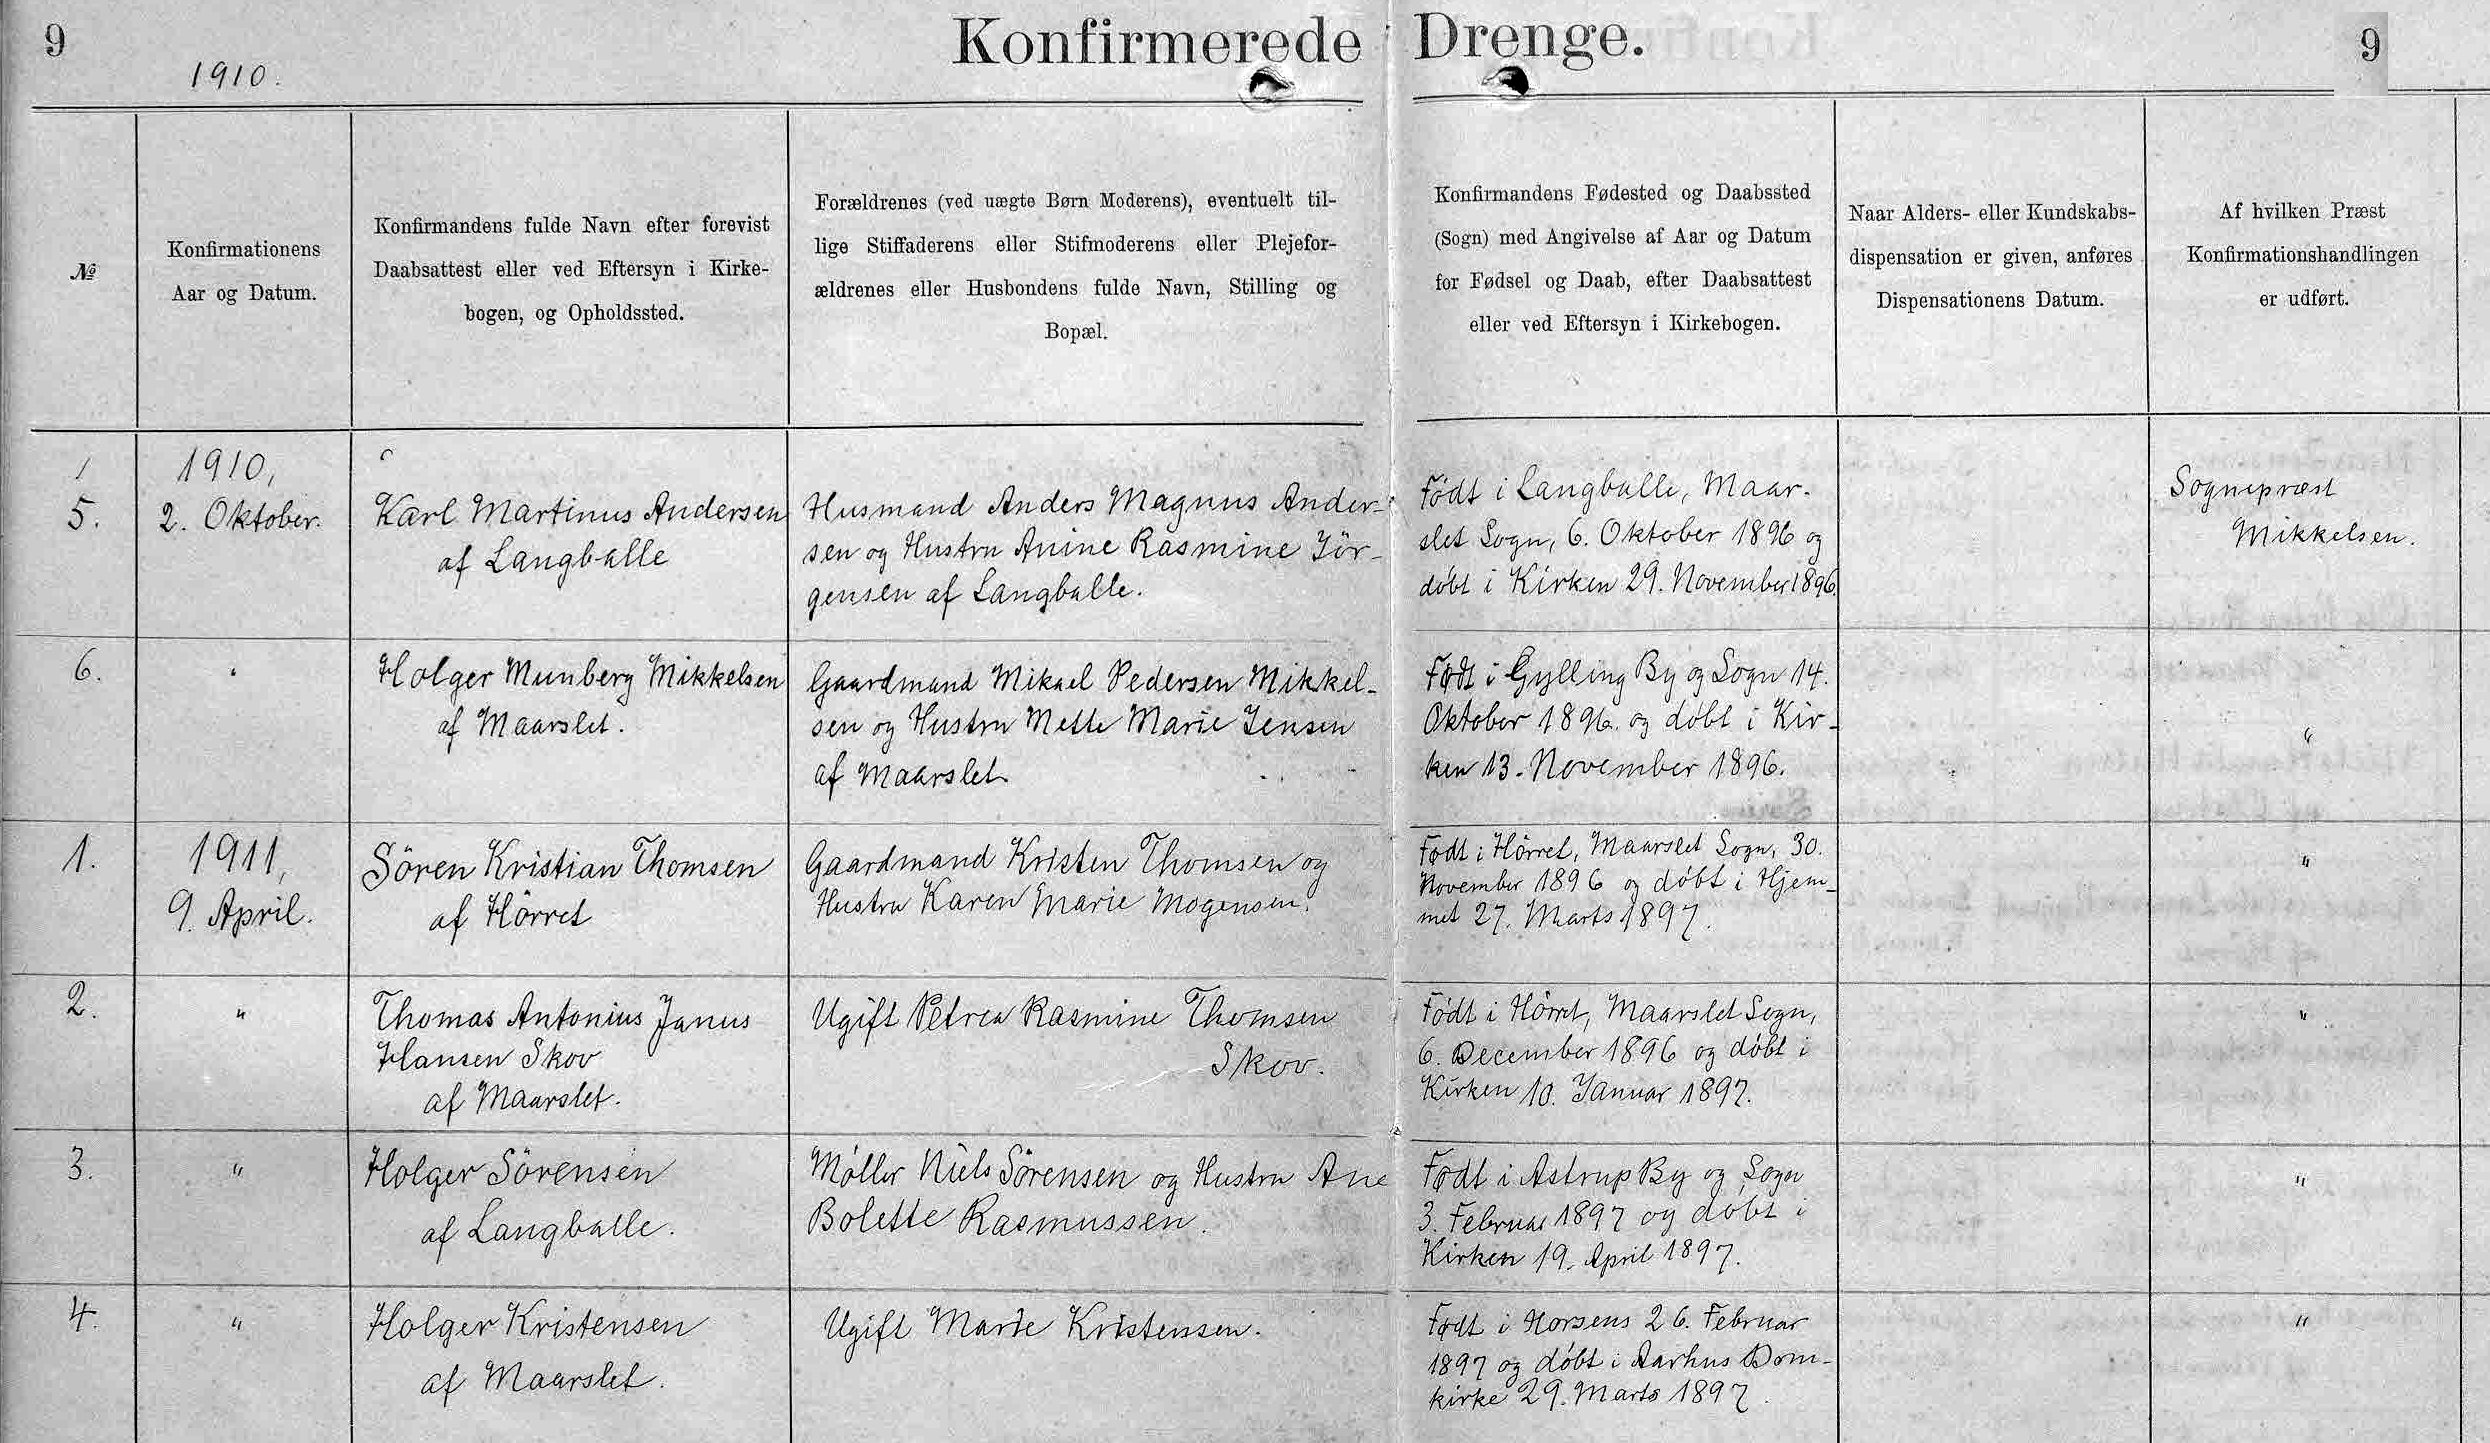 9
1910.
Konfirmerede Drenge.
9
№
Konfirmationens
Aar og Datum.
Konfirmandens fulde Navn efter forevist
Daabsattest eller ved Eftersyn i Kirke-
bogen, og Opholdssted.
Forældrenes (ved uægte Børn Moderens), eventuelt til-
lige Stiffaderens eller Stifmoderens eller Plejefor-
ældrenes eller Husbondens fulde Navn, Stilling og
Bopæl.
Konfirmandens Fødested og Daabssted
(Sogn) med Angivelse af Aar og Datum
for Fødsel og Daab, efter Daabsattest
eller ved Eftersyn i Kirkebogen.
Naar Alders- eller Kundskabs-
dispensation er given, anføres
Dispensationens Datum.
Af hvilken Præst
Konfirmationshandlingen
er udført.
5.
1910,
2. Oktober.
Karl Martinus Andersen
af Langballe
Husmand Anders Magnus Ander-
sen og Hustru Anine Rasmine Jör-
gensen af Langballe.
Födt i Langballe, Maar-
slet Sogn, 6. Oktober 1896 og
döbt i Kirken 29. November 1896.
Sognepræst
Mikkelsen.
6.
"
Holger Munberg Mikkelsen
af Maarslet.
Gaardmand Mikael Pedersen Mikkel-
sen og Hustru Mette Marie Jensen
af Maarslet.
Födt i Gylling By og Sogn 14.
Oktober 1896. og döbt i Kir-
ken 13. November 1896.
"
1.
1911,
9. April.
Sören Kristian Thomsen
af Hörret
Gaardmand Kristen Thomsen og
Hustru Karen Marie Mogensen.
Födt i Hörret, Maarslet Sogn, 30.
November 1896 og döbt i Hjem-
met 27. Marts 1897.
"
2.
"
Thomas Antonius Janus
Hansen Skov
af Maarslet.
Ugift Petrea Rasmine Thomsen
Skov.
Födt i Hörret, Maarslet Sogn,
6. December 1896 og döbt i
Kirken 10. Januar 1897.
"
3.
"
Holger Sörensen
af Langballe.
Møller Niels Sörensen og Hustru Ane
Bolette Rasmussen.
Födt i Astrup By og Sogn
3. Februar 1897 og döbt i
Kirken 19. April 1897.
"
4.
"
Holger Kristensen
af Maarslet.
Ugift Marie Kristensen.
Födt i Horsens 26. Februar
1897 og döbt i Aarhus Dom-
kirke 29. Marts 1897.
"